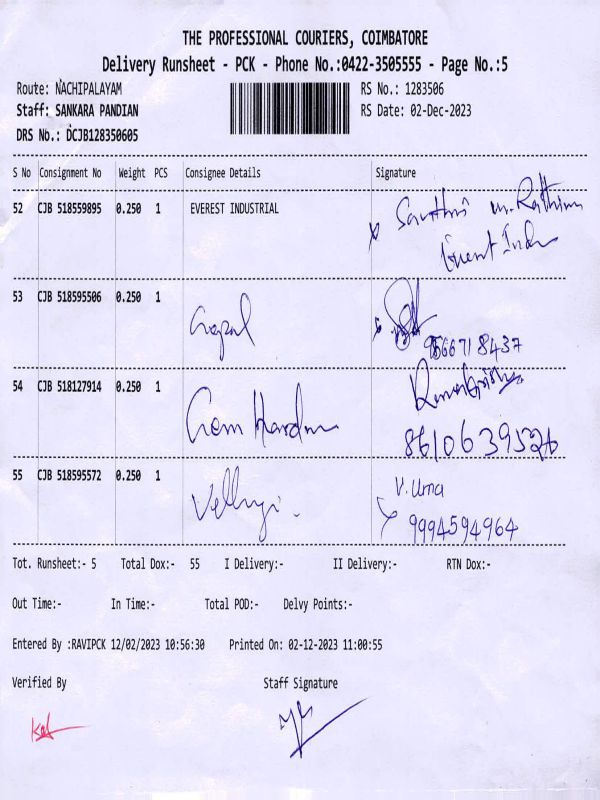 THE PROFESSIONAL COURIERS, COIMBATORE
Delivery Runsheet - PCK - Phone No.:0422-3505555 - Page No.:5
Route: NACHIPALAYAM RS No.: 1283506
Staff: SANKARA PANDIAN RS Date: 02-Dec-2023
DRS No.: DCJB128350605
S No Consignment No Weight PCS Consignee Details Signature
52 CJB 518559895 0.250 1 EVEREST INDUSTRIAL
53 CJB 518595506 0.250 1 Gopal
54 CJB 518127914 0.250 1 Gem
55 CJB 518595572 0.250 1 V. Uma
9994594964
Tot. Runsheet:- 5 Total Dox:- 55 I Delivery:- II Delivery:- RTN Dox:-
Out Time:- In Time:- Total POD:- Delvy Points:-
Entered By :RAVIPCK 12/02/2023 10:56:30 Printed On: 02-12-2023 11:00:55
Verified By Staff Signature